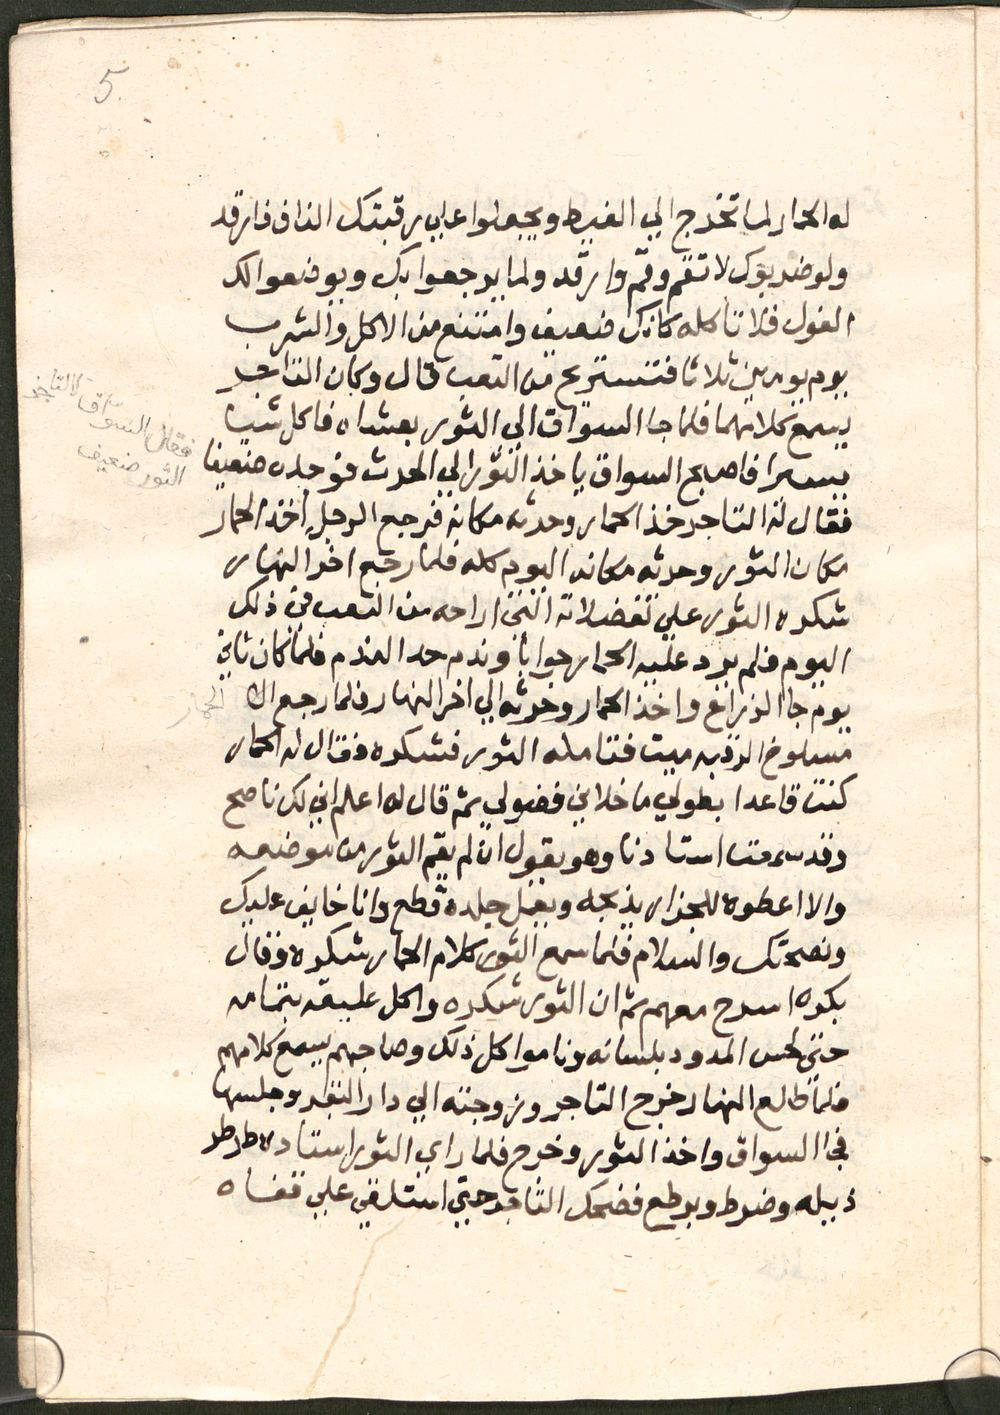 5.
له الحمار لما تخرج الي الغيط ويجعلوا علي رقبتك الناف فارقد
ولو ضربوك لا تقم وقم وارقد ولما يرجعوا بك ويوضعوا لك
الفول فلا تاكله كانك ضعيف وامتنع من الاكل والشرب
يوم يومين ثلاثا فتستريح من التعب قال وكان التاجر
يسمع كلامهما فلما جا السواق الي الثور بعشاه فاكل شيا
يسيرا فاصبح السواق ياخذ الثور الي الحرث فوجده ضعيفا
فقال له التاجر خذ الحمار وحرثه مكانه فرجع الرجل اخذ الحمار
مكان الثور وحرثه مكانه اليوم كله فلما رجع اخر النهار
شكره الثور علي تفضلاته الذي اراحه من التعب في ذلك
اليوم فلم يرد عليه الحمار جوابا وندم حد الندم فلما كان ثاني
يوم جا الزراع واخذ الحمار وحرثه الي اخر النهار فلما رجع الا
مسلوخ الرقبه ميت فتامله الثور فشكره فقال له الحمار
كنت قاعدا بطولي ما خلاني فضولي ثم قال له اعلم اني لك ناصح
وقد سمعت استادنا وهو يقول ان لم يقم الثور من موضعه
والا اعطوه للجزار يذبحه ويعمل جلده قطع وانا خايف عليك
ونصحتك والسلام فلما سمع الثور كلام الحمار شكره وقال
بكره اسرح معهم ثم ان الثور شكره واكل عليقه بتمامه
حتي لحس المدود بلسانه وناموا كل ذلك وصاحبهم يسمع كلامهم
فلما طلع النهار خرج التاجر وزوجته الي دار البقر وجلسها
في االسواق واخذ الثور وخرج فلما راي الثور استاده طرطر
ذيله وضرط وبرطع فضحك التاجر حتي استلقي علي قفاه
فقال السواق للتاجر
الثور ضعيف
الحمار